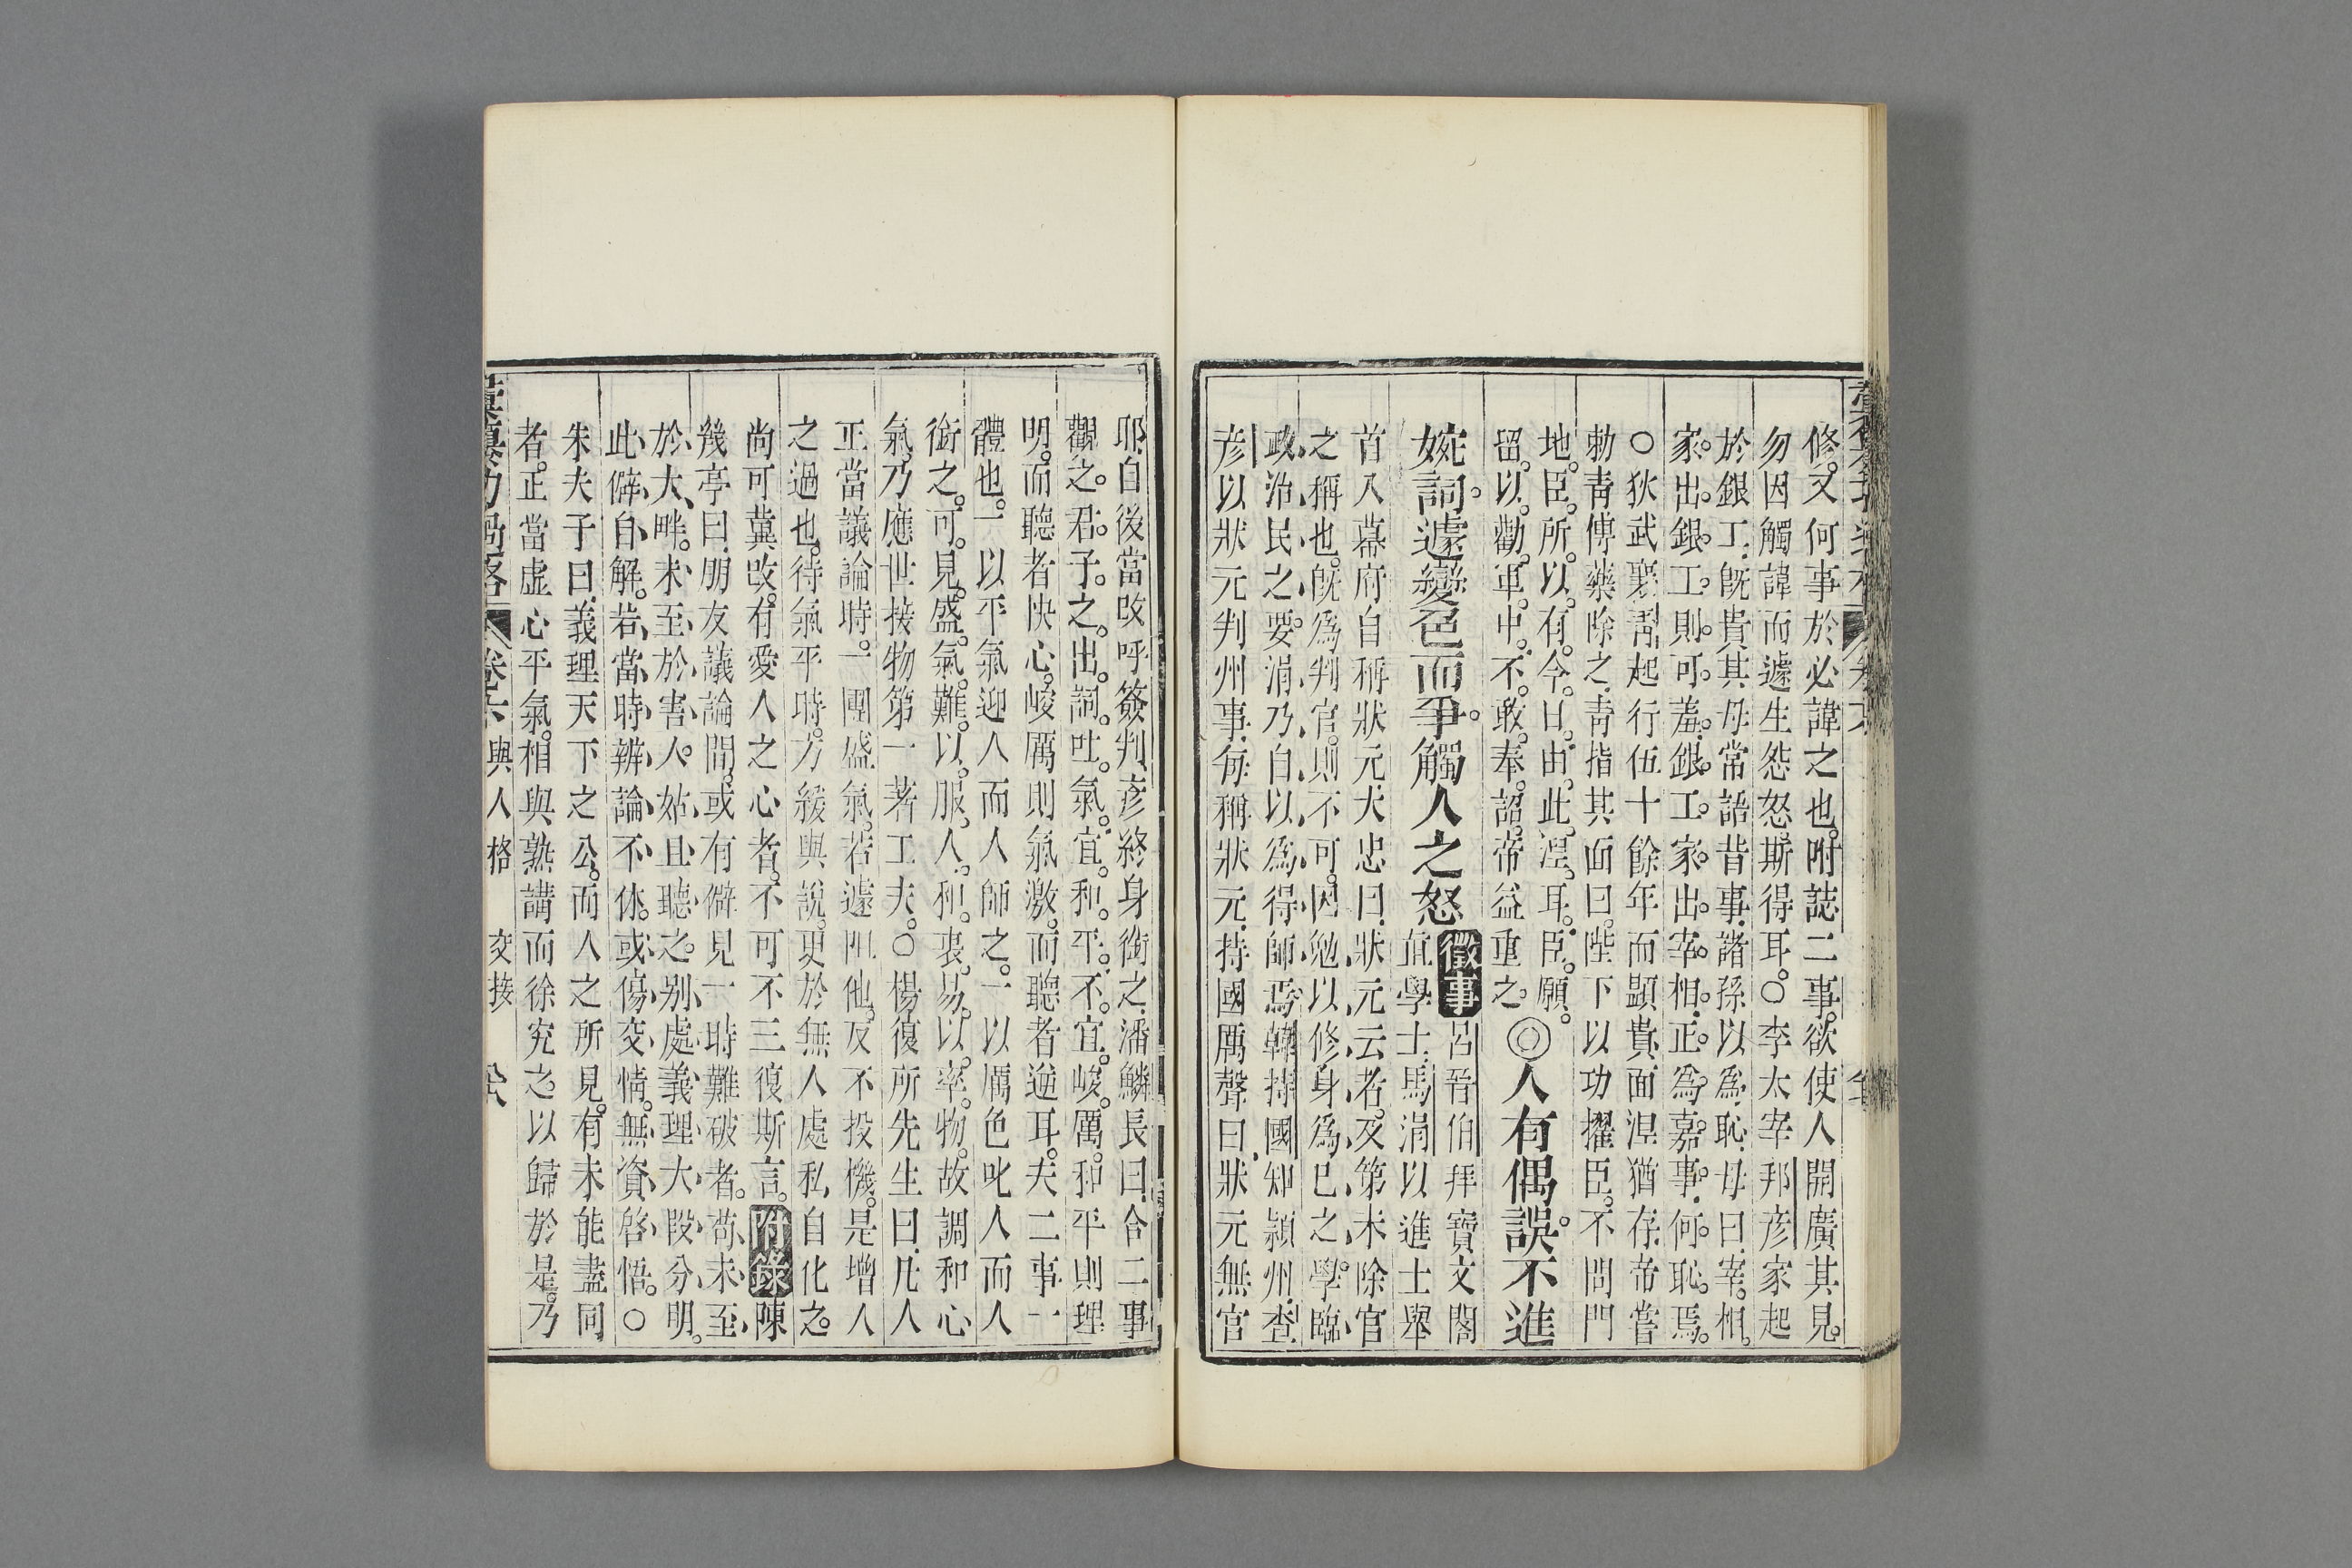 修又何事於必諱之也附誌二事欲使人開廣其見
勿因觸諱而遽生怨怒斯得耳○李太宰邦彥家起
於銀工旣貴其母常語昔事諸孫以爲恥母曰宰相
家出銀工則可羞銀工家出宰相正爲嘉事何恥焉
○狄武襄靑起行伍十餘年而顯貴面涅猶存帝嘗
勅靑傅藥除之靑指其面曰陛下以功擢臣不問門
地臣所以有今日由此涅耳臣願
留以勸軍中不敢奉詔帝益重之◎人有偶誤不進
婉詞遽變色而爭觸人之怒徵事呂晉伯拜寶文閣
直學士馬涓以進士舉
首入幕府自稱狀元大忠曰狀元云者及第未除官
之稱也旣爲判官則不可因勉以修身爲己之學臨
政治民之要涓乃自以爲得師焉韓持國知潁州查
彥以狀元判州事每稱狀元持國厲聲曰狀元無官
耶自後當改呼簽判彥終身銜之潘鱗長曰合二事
觀之君子之出詞吐氣宜和平不宜峻厲和平則理
明而聽者快心峻厲則氣激而聽者逆耳夫二事一
體也一以平氣迎人而人師之一以厲色叱人而人
銜之可見盛氣難以服人和衷易以率物故調和心
氣乃應世接物第一著工夫○楊復所先生曰凡人
正當議論時一團盛氣若遽阻他反不投機是增人
之過也待氣平時方緩與說更於無人處私自化之
尚可冀改有愛人之心者不可不三復斯言附錄陳
幾亭曰朋友議論間或有僻見一時難破者苟未至
於大畔未至於害人姑且聽之別處義理大段分明
此僻自解若當時辨論不休或傷交情無資啓悟○
朱夫子曰義理天下之公而人之所見有未能盡同
者正當虛心平氣相與熟講而徐究之以歸於是乃
與人格 交接